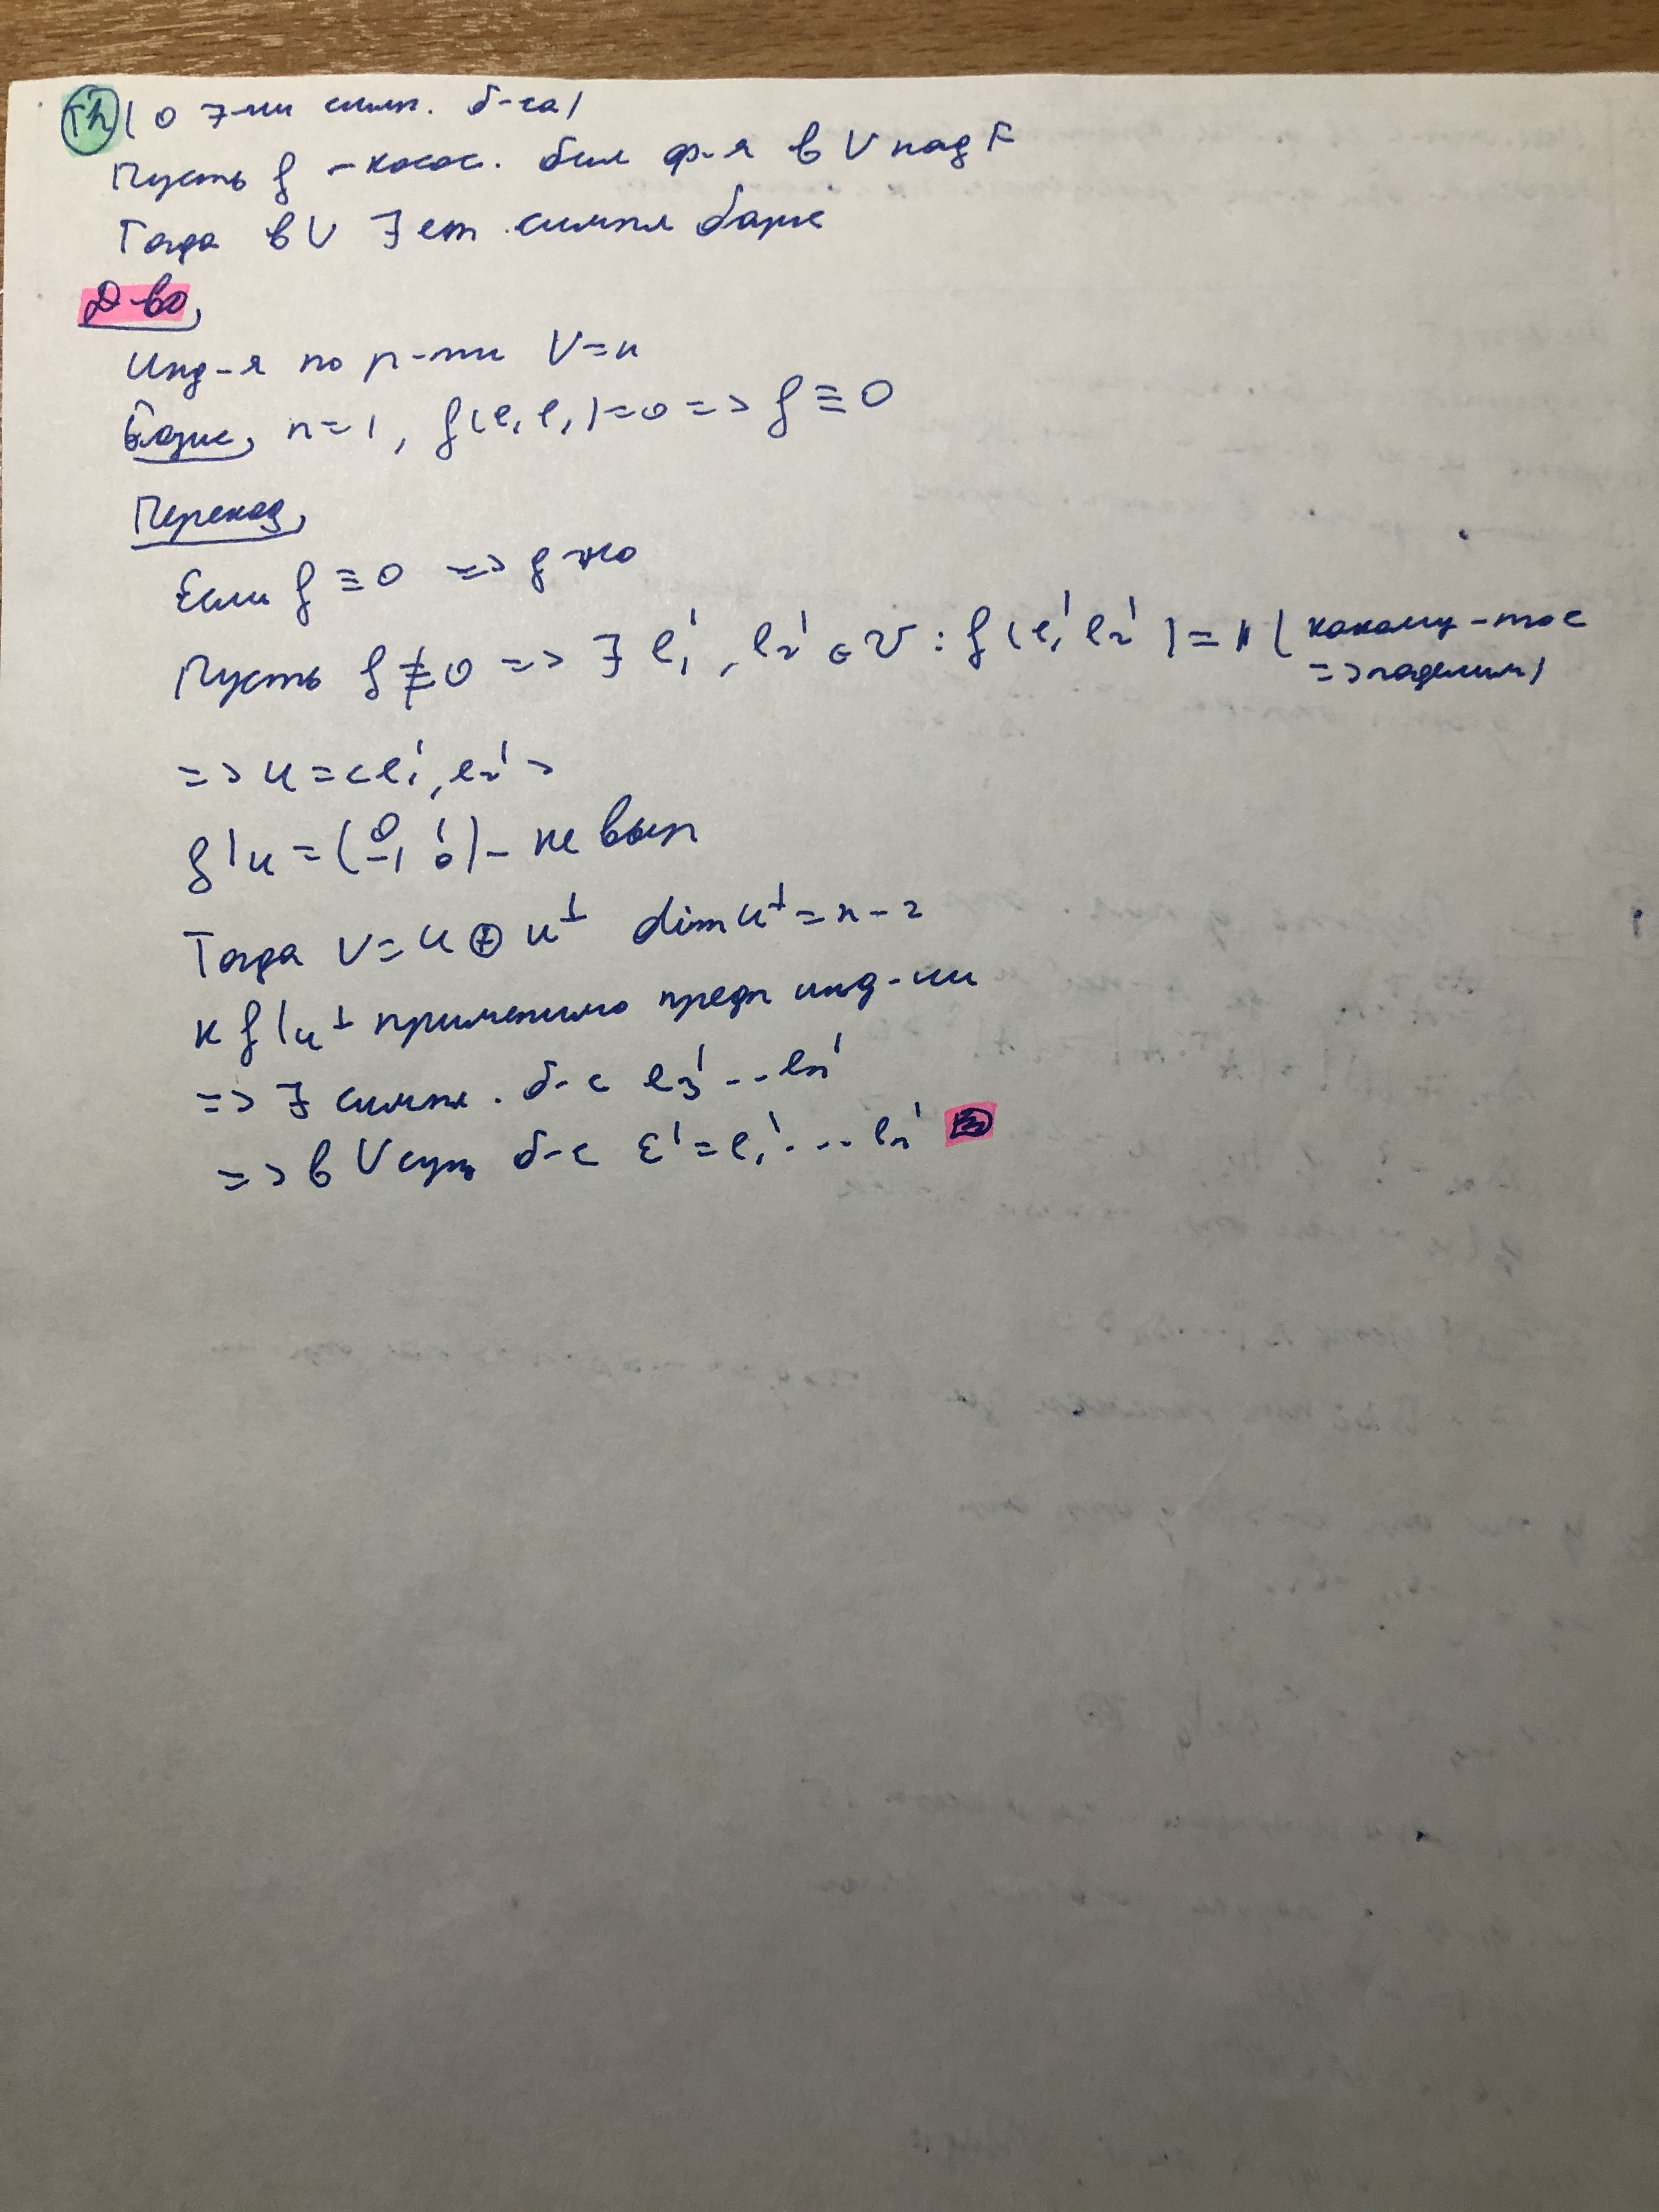 Th ( о ∃-ии симп. б-са)
Пусть f - косос. бил ф-я в V над F
Тогда в V ∃ ет симпл базис
Д-во,
Инд-я по р-ти V=n
Базис, n=1, f(e₁ e₁)=0 => f≡0
Переход,
Если f≡0 => f
Пусть f≢0 => ∃ e₁', e₂' ∈ V : f(e₁' e₂') = 1 ( какому-то c
=> поделим)
=> U = <e₁', e₂'>
f|u = (0 1
-1 0) - не выр
Тогда V = U ⊕ U^⊥ dim U^⊥ = n-2
к f|u^⊥ применимо предп инд-ии
=> ∃ симпл. б-с e₃' ... en'
=> в V сущ б-с ε' = e₁' ... en'